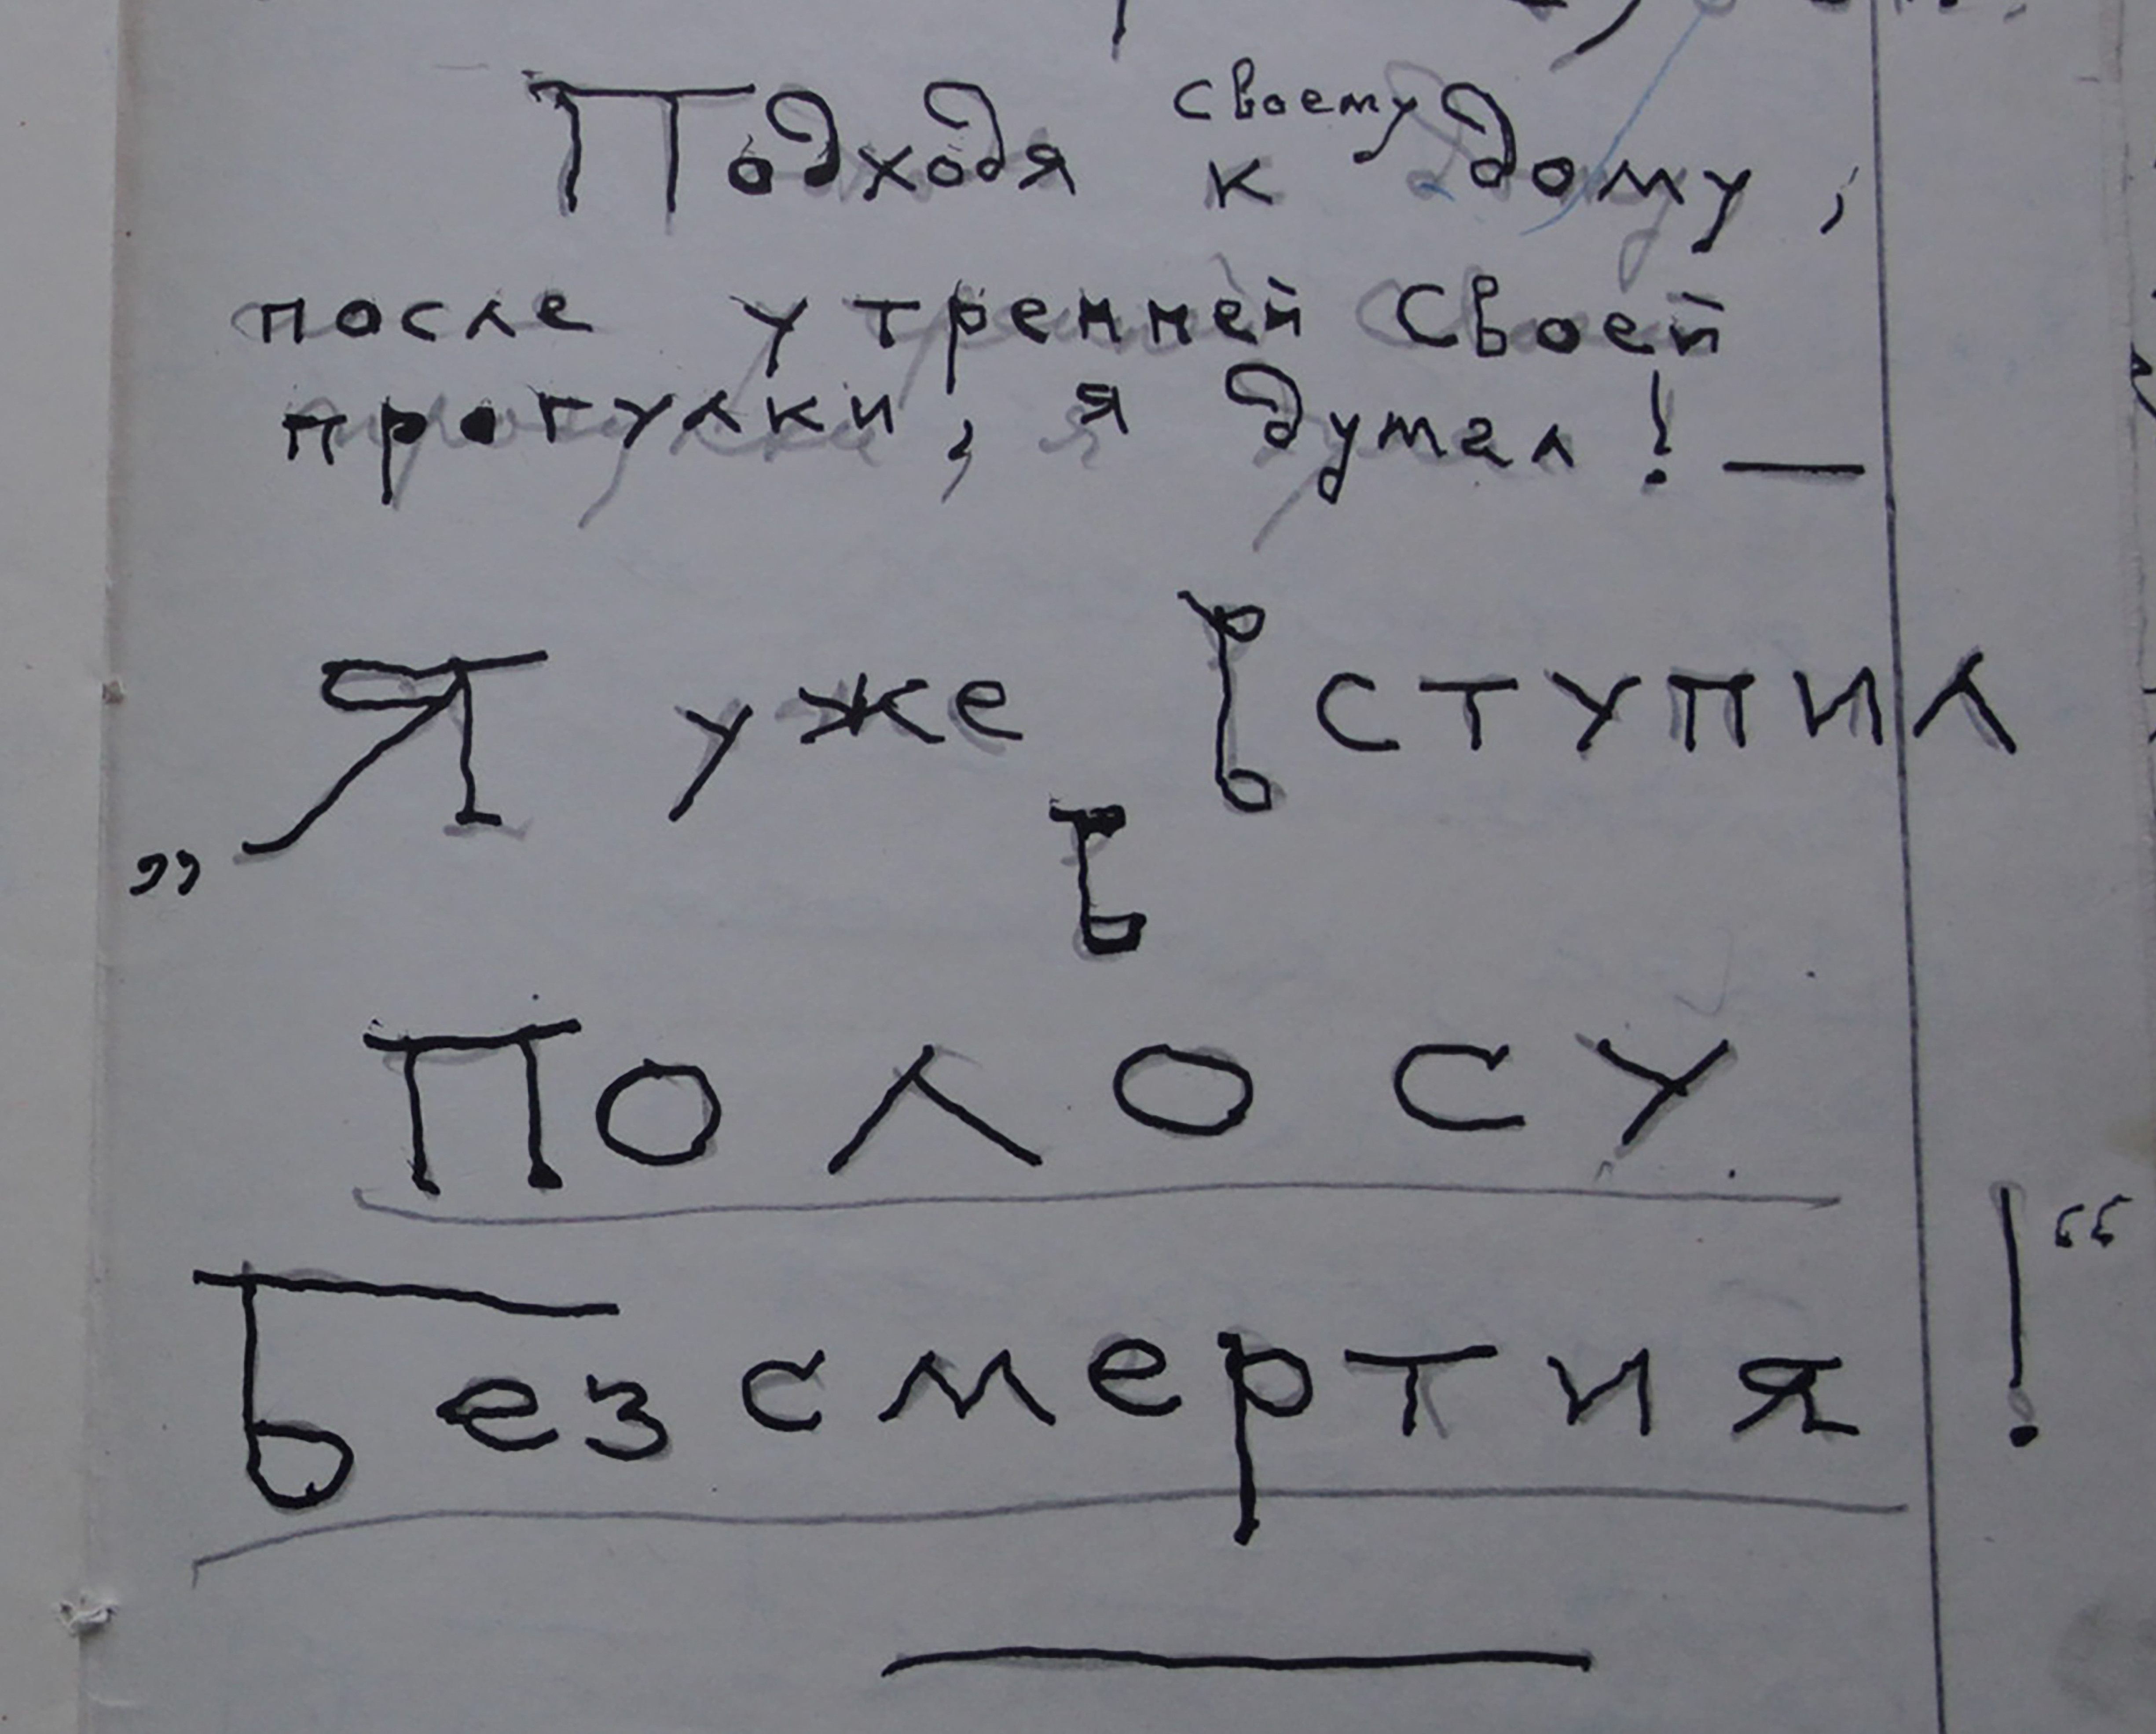 своему
Подходя к дому,
после утренней Своей
прогулки, я думал! —
„Я уже Вступил
в
Полосу
Безсмертия!“